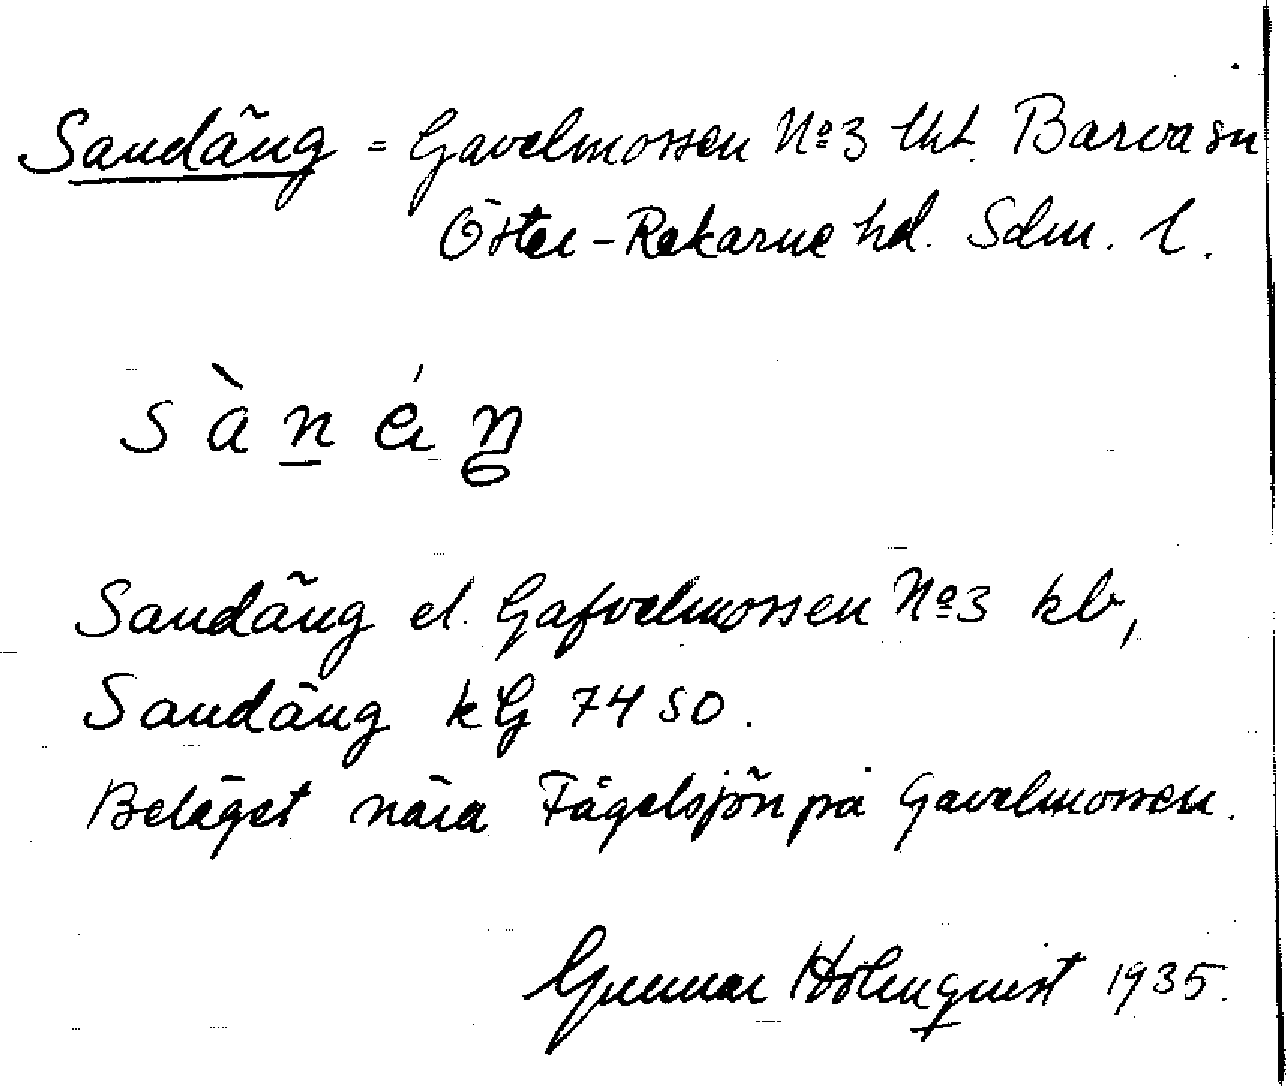 Sandäng = Gavelmossen No 3 lht. Barva sn
Öster-Rekarne hd. Sdm. l.
s à n é ŋ
Sandäng el. Gafvelmossen No 3 kb,
Sandäng kG 74 SO.
Beläget nära Fågelsjön på Gavelmossen.
Gunnar Holmquist 1935.